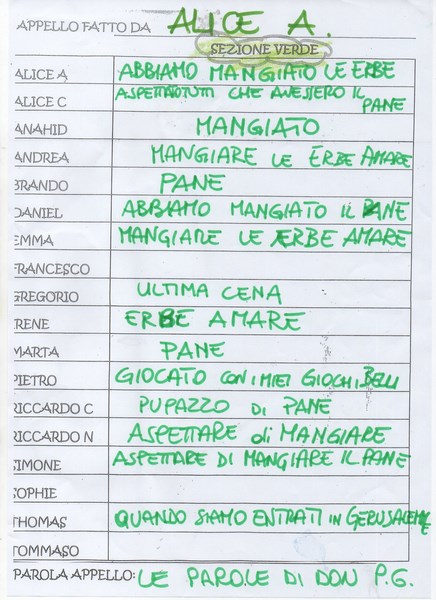 APPELLO FATTO DA ALICE A.
SEZIONE VERDE
ALICE A ABBIAMO MANGIATO LE ERBE
ALICE C ASPETTATO TUTTI CHE AVESSERO IL
PANE
ANAHID MANGIATO
ANDREA MANGIARE LE ERBE AMARE
BRANDO PANE
DANIEL ABBIAMO MANGIATO IL PANE
EMMA MANGIARE LE ERBE AMARE
FRANCESCO
GREGORIO ULTIMA CENA
IRENE ERBE AMARE
MARTA PANE
PIETRO GIOCATO CON I MIEI GIOCHI BELLI
RICCARDO C PUPAZZO DI PANE
RICCARDO N ASPETTARE di MANGIARE
SIMONE ASPETTARE DI MANGIARE IL PANE
SOPHIE
THOMAS QUANDO SIAMO ENTRATI in GERUSALEMME
TOMMASO
PAROLA APPELLO: LE PAROLE DI DON P.G.